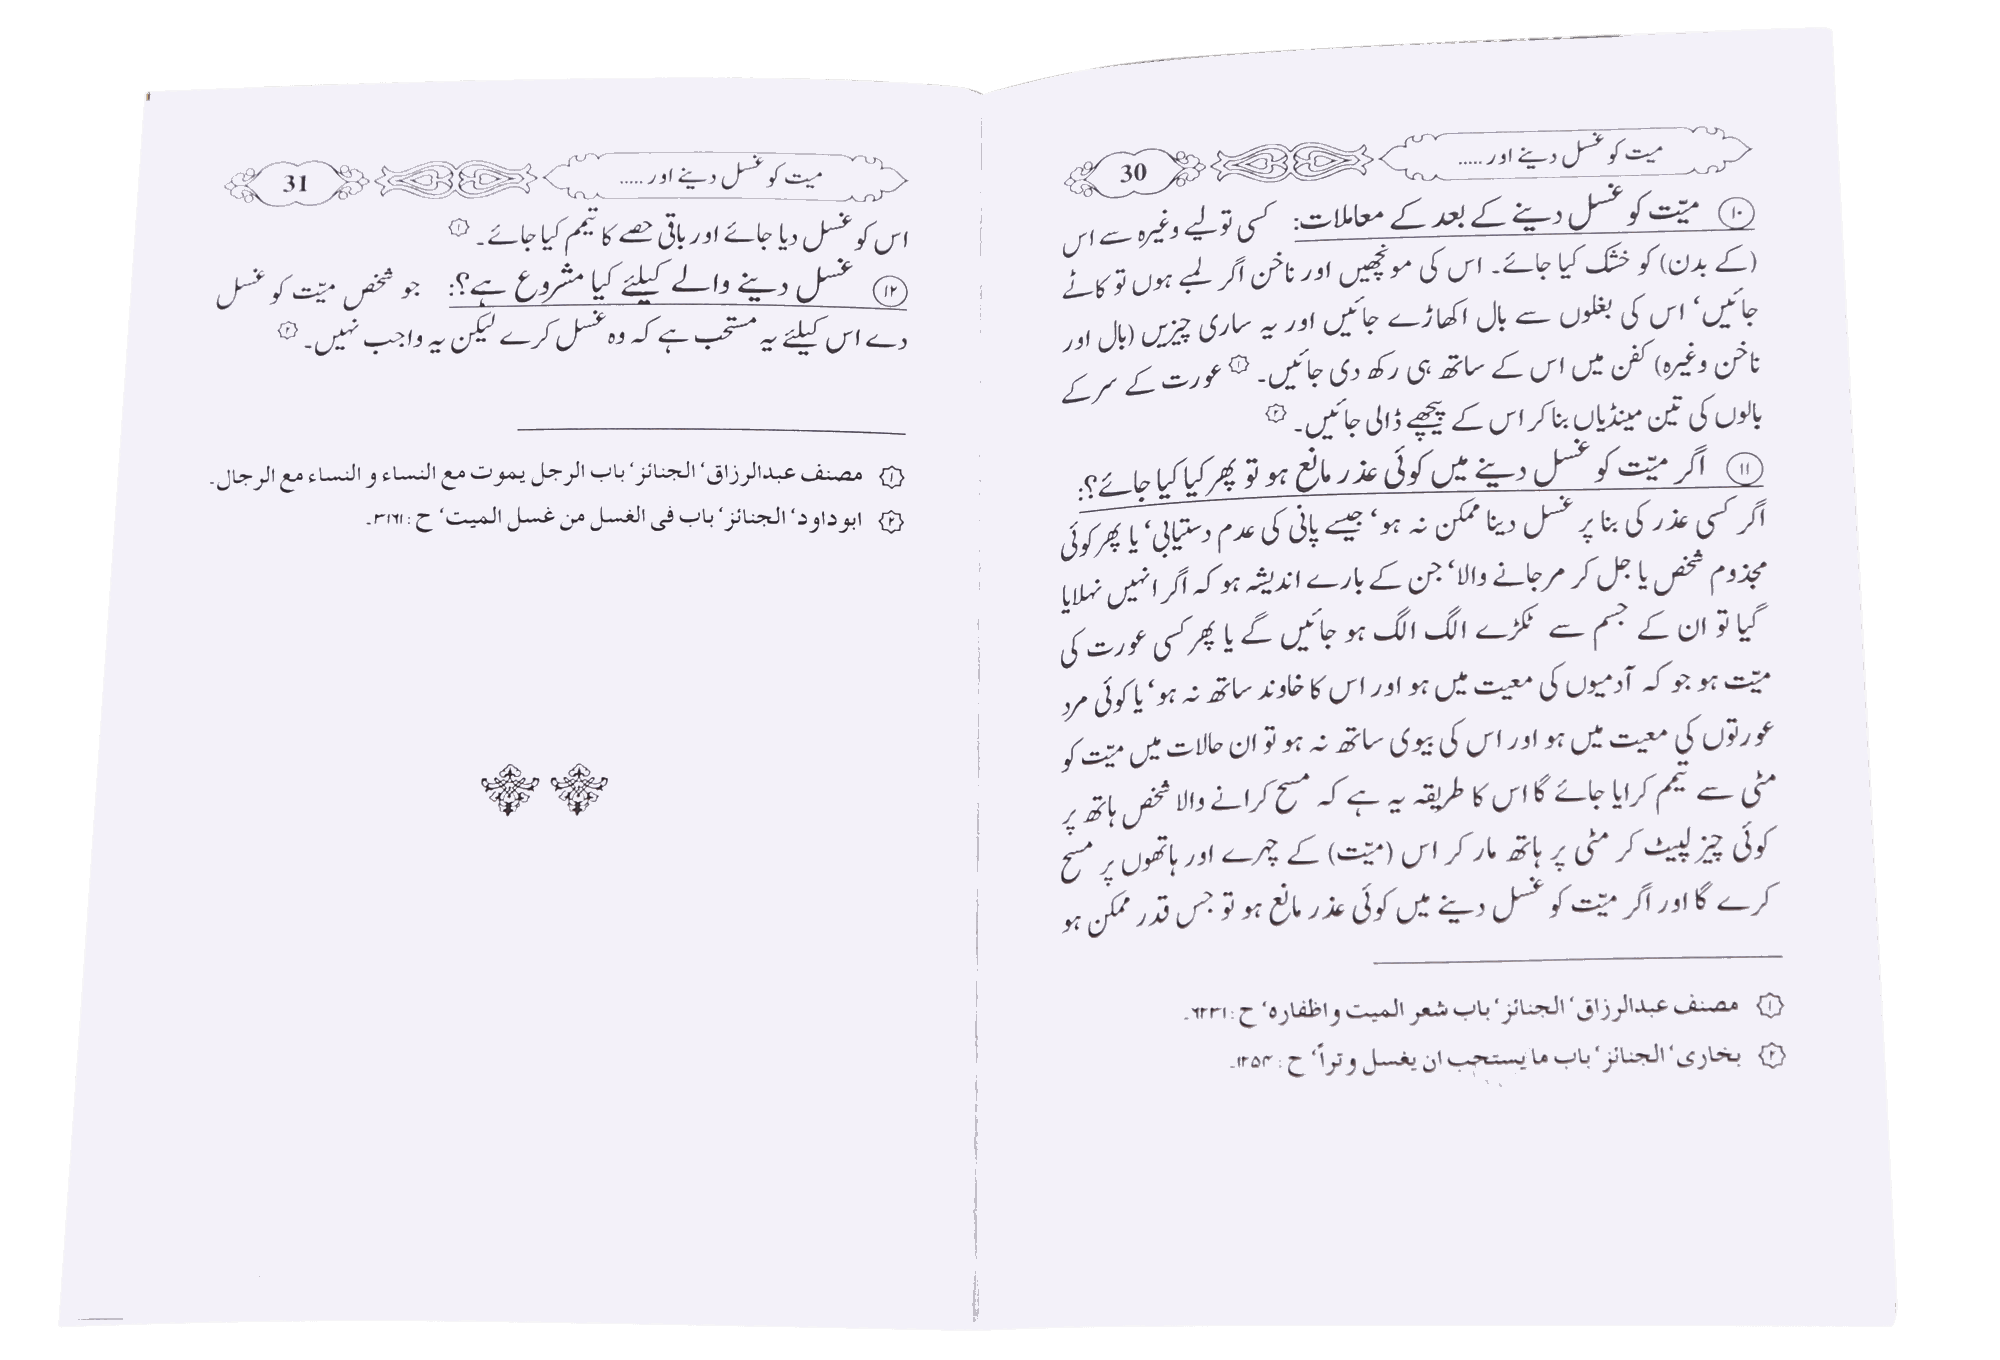 میت کو غسل دینے اور ..... 30
⑩ میّت کو غسل دینے کے بعد کے معاملات: کسی تولیے وغیرہ سے اس
(کے بدن) کو خشک کیا جائے۔ اس کی مونچھیں اور ناخن اگر لمبے ہوں تو کاٹے
جائیں‘ اس کی بغلوں سے بال اکھاڑے جائیں اور یہ ساری چیزیں (بال اور
ناخن وغیرہ) کفن میں اس کے ساتھ ہی رکھ دی جائیں۔ ۱ عورت کے سر کے
بالوں کی تین مینڈیاں بنا کر اس کے پیچھے ڈالی جائیں۔ ۲
⑪ اگر میّت کو غسل دینے میں کوئی عذر مانع ہو تو پھر کیا کیا جائے؟:
اگر کسی عذر کی بنا پر غسل دینا ممکن نہ ہو‘ جیسے پانی کی عدم دستیابی‘ یا پھر کوئی
مجذوم شخص یا جل کر مر جانے والا‘ جن کے بارے اندیشہ ہو کہ اگر انہیں نہلایا
گیا تو ان کے جسم سے ٹکڑے الگ الگ ہو جائیں گے یا پھر کسی عورت کی
میّت ہو جو کہ آدمیوں کی معیت میں ہو اور اس کا خاوند ساتھ نہ ہو‘ یا کوئی مرد
عورتوں کی معیت میں ہو اور اس کی بیوی ساتھ نہ ہو تو ان حالات میں میّت کو
مٹی سے تیمم کرایا جائے گا اس کا طریقہ یہ ہے کہ مسح کرانے والا شخص ہاتھ پر
کوئی چیز لپیٹ کر مٹی پر ہاتھ مار کر اس (میّت) کے چہرے اور ہاتھوں پر مسح
کرے گا اور اگر میّت کو غسل دینے میں کوئی عذر مانع ہو تو جس قدر ممکن ہو
۱ مصنف عبدالرزاق‘ الجنائز‘ باب شعر المیت و اظفارہ‘ ح: ۶۲۳۱۔
۲ بخاری‘ الجنائز‘ باب ما یستحب ان یغسل و تراً‘ ح: ۱۲۵۴۔
میت کو غسل دینے اور ..... 31
اس کو غسل دیا جائے اور باقی حصے کا تیمم کیا جائے۔ ۱
⑫ غسل دینے والے کیلئے کیا مشروع ہے؟: جو شخص میّت کو غسل
دے اس کیلئے یہ مستحب ہے کہ وہ غسل کرے لیکن یہ واجب نہیں۔ ۲
۱ مصنف عبدالرزاق‘ الجنائز‘ باب الرجل یموت مع النساء و النساء مع الرجال۔
۲ ابو داود‘ الجنائز‘ باب فی الغسل من غسل المیت‘ ح: ۳۱۶۱۔